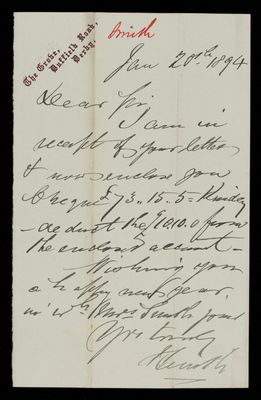 The Grove,
Duffield Road,
Derby.
Smith
Jan 20th 1894
Dear Sir,
I am in
receipt of your letter
& now enclose you
Cheque £73.. 15. 5 = Kindly
- deduct the £10.10.0 from
the enclosed account -
Wishing you
a happy new year,
in wh Mrs Smith joins
Yrs truly
Smith